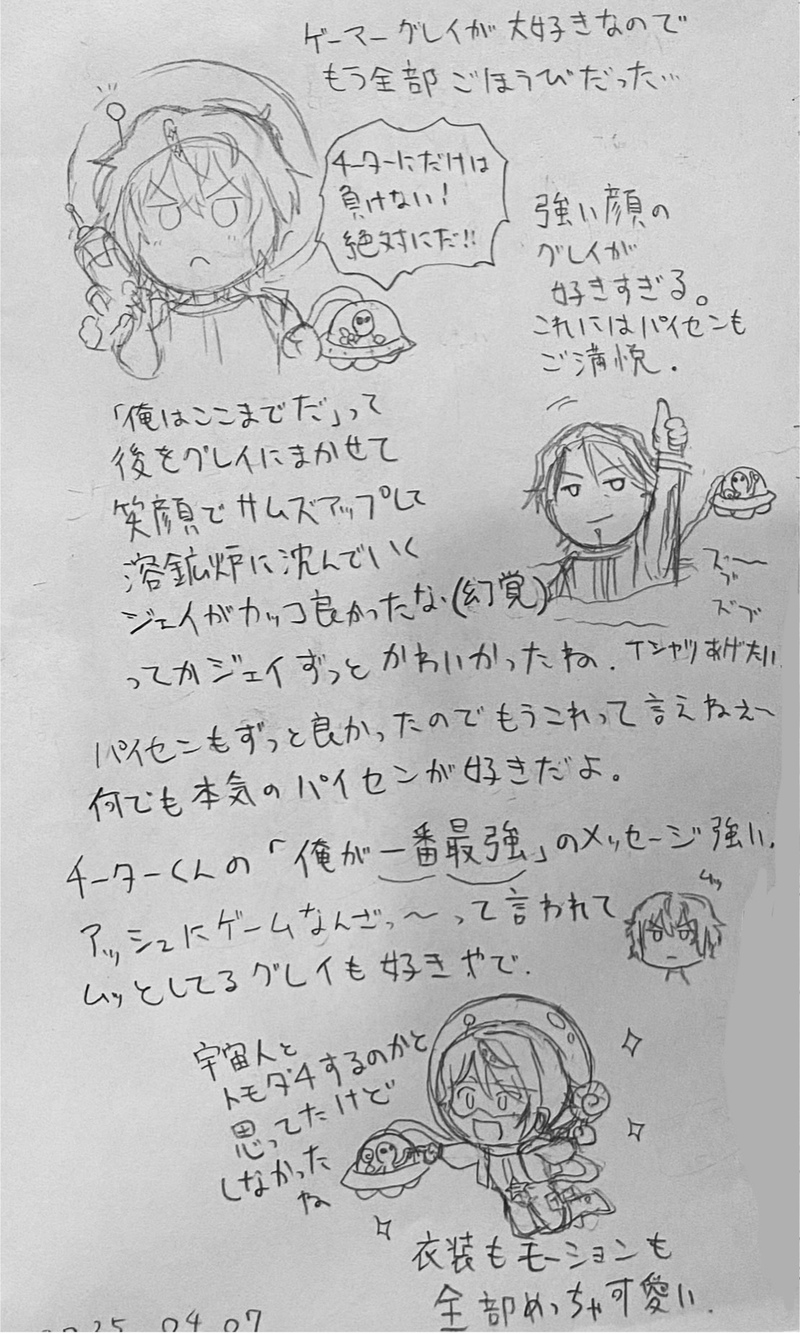 ゲーマーグレイが大好きなので
もう全部ごほうびだった…
チーターにだけは
負けない!
絶対にだ!!
強い顔の
グレイが
好きすぎる。
これにはパイセンも
ご満悦.
「俺はここまでだ」って
後をグレイにまかせて
笑顔でサムズアップして
溶鉱炉に沈んでいく
ジェイがカッコ良かったな(幻覚)
ズブ
ズブ
ってかジェイずっとかわいかったね.
Tシャツあげたい
パイセンもずっと良かったのでもうこれって言えねぇ〜
何でも本気のパイセンが好きだよ。
チーターくんの「俺が一番最強」のメッセージ強い.
アッシュにゲームなんざっ〜って言われて
ムッとしてるグレイも好きやで.
ムッ
宇宙人と
トモダチするのかと
思ってたけど
しなかった
ね
衣装もモーションも
全部めっちゃ可愛い.
2025 04 07